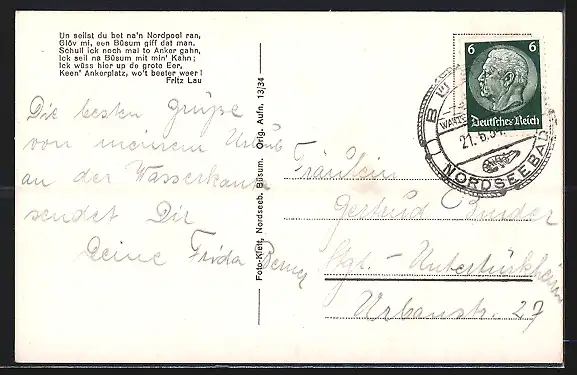 Un seilst du bet na'n Nordpool ran,
Glöv mi, een Büsum giff dat man.
Schull ick noch mal to Anker gahn,
Ick seil na Büsum mit min' Kahn;
Ick wüss hier up de grote Eer,
Keen' Ankerplatz, wo't beeter weer!
Fritz Lau
Die besten Grüße
von meinem Urlaub
an der Wasserkante
sendet Dir
Deine Frida
Foto-Kleit, Nordseeb. Büsum. Orig. Aufn. 13/34
6 6
Deutsches Reich
21.6.34
NORDSEEBAD
Fräulein
Gertrud Binder
Stgt.-Untertürkheim
Urbanstr. 27